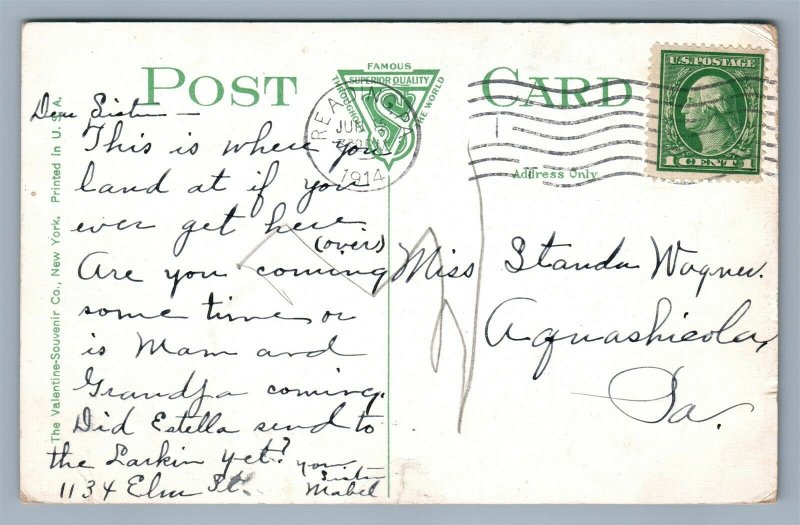 POST CARD
FAMOUS
SUPERIOR QUALITY
THROUGHOUT THE WORLD
READING PA
JUN
1914
U.S. POSTAGE
1 CENT 1
Address Only.
The Valentine-Souvenir Co., New York. Printed in U. S. A.
Dear Sister—
This is where you
land at if you
ever get here.
(over)
Are you coming
some time or
is Mam and
Grandpa coming.
Did Estella send to
the Larkin yet?
your
Sister
Mabel
1134 Elm St.
Miss Wagner.
Aquashicola,
Pa.